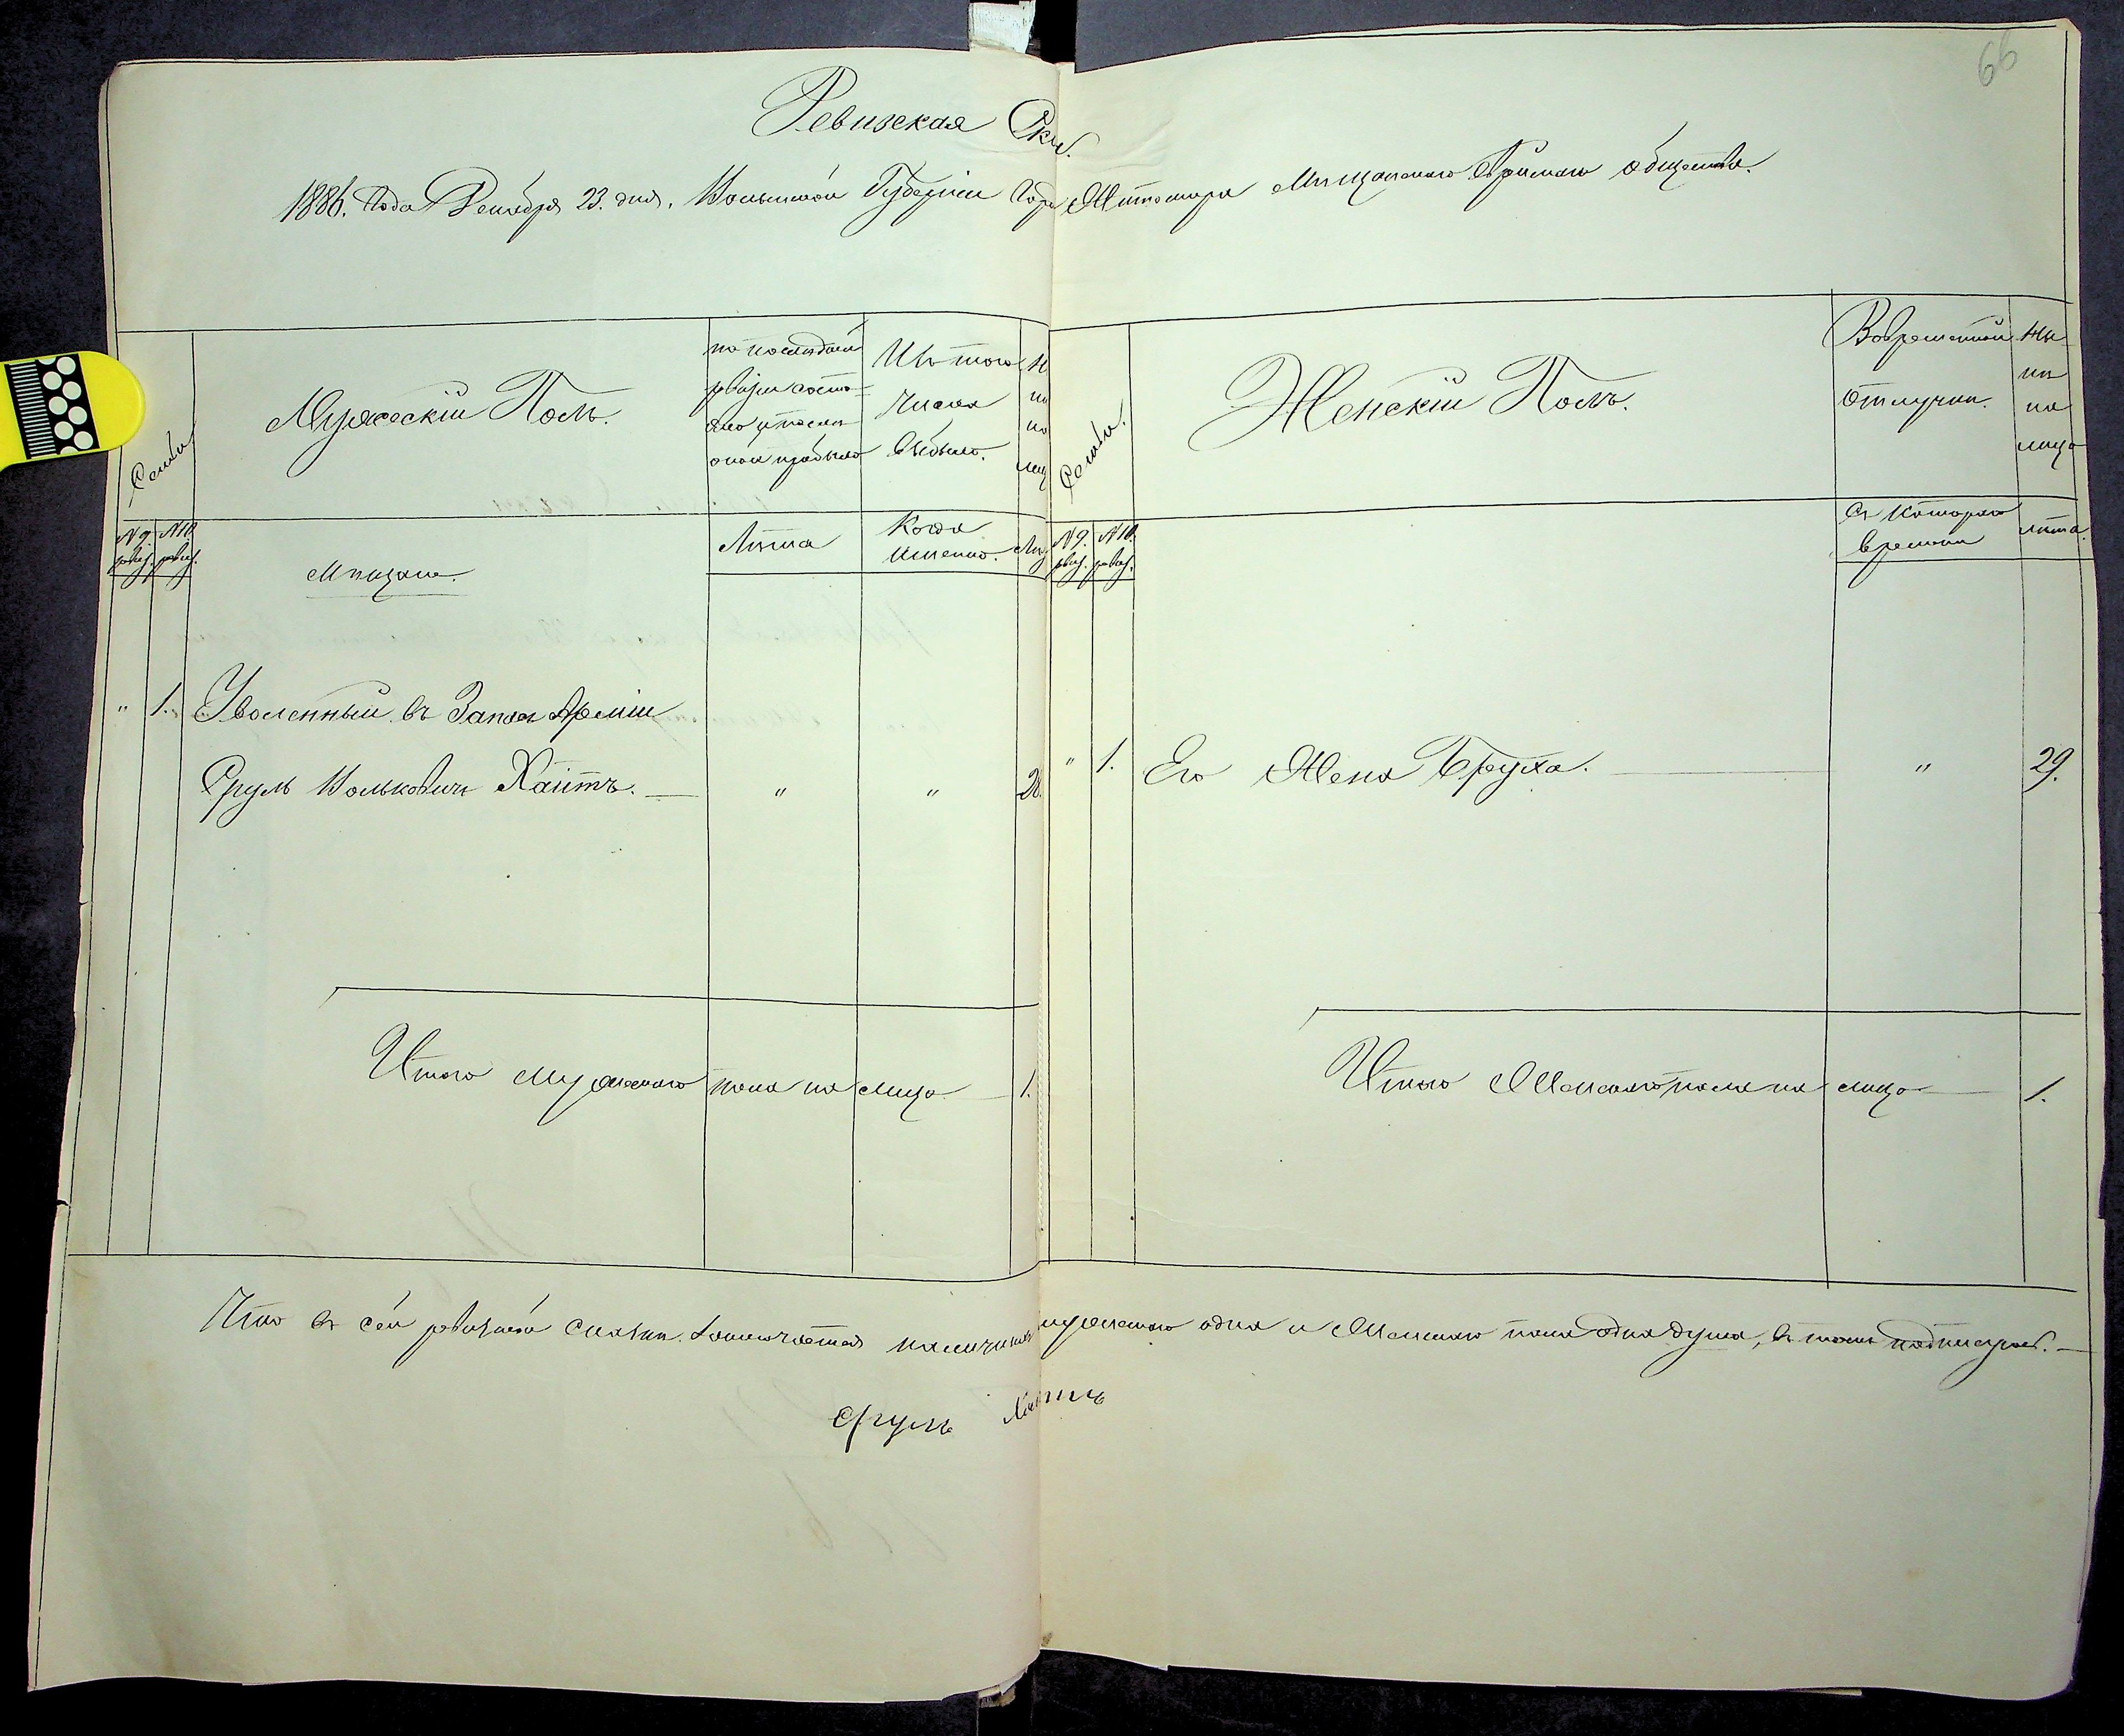 66
Ревизская Ск.
1886. года Декабря 23. дня. Волынской Губернiи Гор. Житомира Мѣщанскаго Еврейскаго общества.
Семьи
Мужескiй Полъ.
по послѣдней
ревизiи состо-
яло и послѣ
оной прибыло
Изъ того
числа
выбыло.
Н
на
лиц
Семьи.
Женскiй Полъ.
Во временной
отлучки.
Ны-
нѣ
на
лицо
№ 9. ревиз.
№ 10. ревиз.
Мѣщане.
Лѣта
Когда
именно.
Лѣ
№ 9. ревиз.
№ 10. ревиз.
Съ котораго
времени
лѣта.
" 1. Уволенный въ Запасъ Армiи
Сруль Волькович Хаитъ. — " " 28.
" 1. Его Жена Бруха. — " 29.
Итого мужескаго пола на лицо — 1.
Итого Женскаго пола на лицо — 1.
Что въ сей ревизской сказкѣ заключается наличныхъ мужескаго одна и Женскаго пола одна душа, въ томъ подписуюсь. —
Сруль Хаитъ